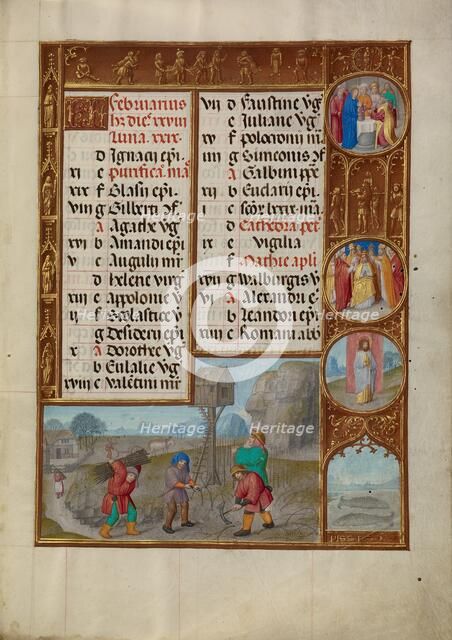 Februarius
hꝫ dieꝭ xxviii
Luna xxix.
d Ignacij epi.
xi e Purificaᵒ. ma
xix f Blasij epi.
viii g Gilberti ꝯf.
A Agathe vg
xvi b Amandi epi
v c Auguli mr
d Helene virg
xiii e Appolonie v
ii f Scolastice v
g Desiderij epi.
x A Dorothee vg
b Eulalie vg
xviii c Valetini mr
vii d Faustine vg
e Juliane vg
xv f Polocronij m
iiii g Simeonis ꝯf
A Gabini ppe
xii b Eucharij epi.
i c
d Cathedra pet
ix e Vigilia
f Mathie apli
xvii g Walburgis v
vi A Alexandri e
b Leandri epi
xiiii c Romani abb
Heritage
Heritage
Heritage
Heritage
Heritage
PISSI